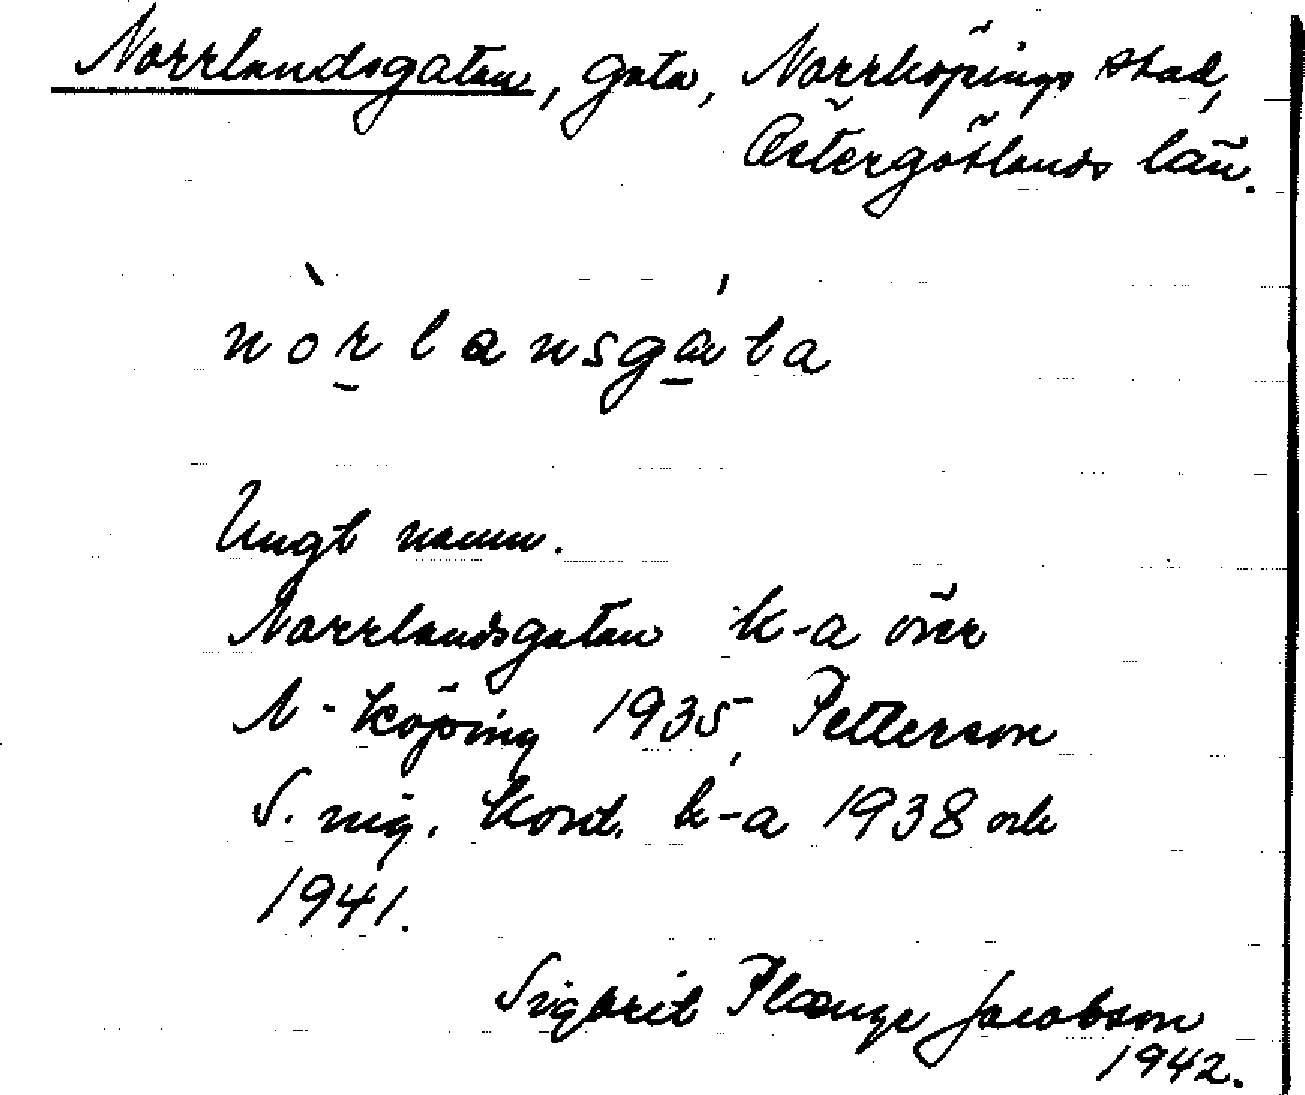 Norrlandsgatan, gata, Norrköpings stad,
Östergötlands län.
nòrlansgáta
Ungt namn.
Norrlandsgatan k-a över
N-köping 1935, Petterson
S. nig. Kond. k-a 1938 och
1941.
Sigbrit Plænge Jacobson
1942.